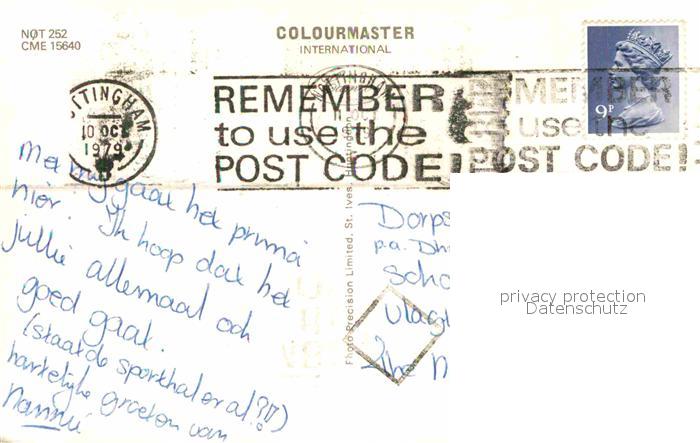 NØT 252
CME 15640
COLOURMASTER
INTERNATIONAL
NOTTINGHAM
10 OCT
1979
REMEMBER
to use the
POST CODE!
REMEMBER
to use the
POST CODE!
9P
Met mij gaat het prima
hier. Ik hoop dat het
jullie allemaal ook
goed gaat.
(staat de sporthal er al?!)
hartelijke groeten van
Photo Precision Limited, St. Ives, Huntingdon
Dorps
p.a.
Scho
Vlag
The N
privacy protection
Datenschutz